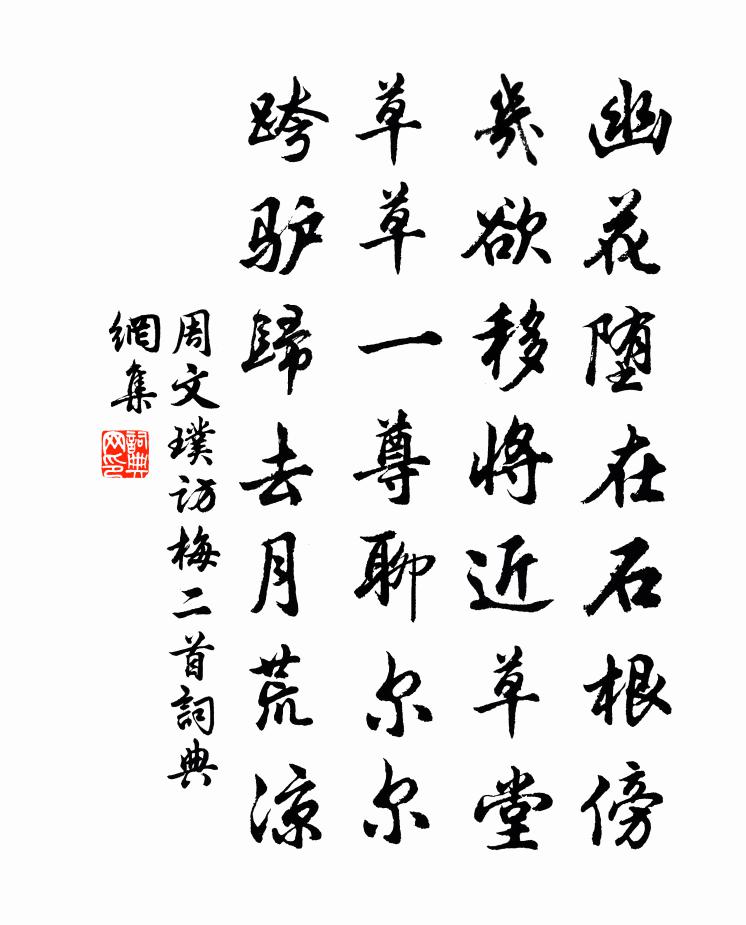 幽花堕在石根傍
幾欲移将近草堂
草草一尊聊尔尔
跨驴歸去月荒凉
周文璞访梅二首詞典
網集
詞典
网印